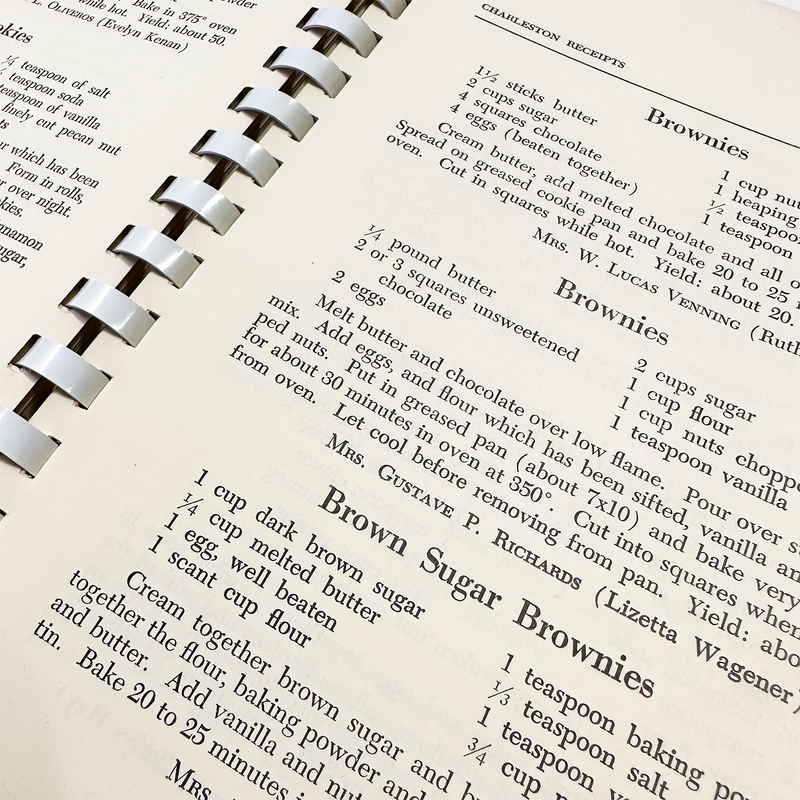 while hot. Yield: about 50.
Bake in 375° oven
L. OLIVEROS (Evelyn Kenan)
¼ teaspoon of salt
teaspoon soda
teaspoon of vanilla
finely cut pecan nut
which has been
Form in rolls,
over night.
sugar,
CHARLESTON RECEIPTS
Brownies
1½ sticks butter
2 cups sugar
4 squares chocolate
4 eggs (beaten together)
1 cup
1 heaping
½
1 teaspoon
Cream butter, add melted chocolate and all
Spread on greased cookie pan and bake 20 to 25
oven. Cut in squares while hot. Yield: about 20.
MRS. W. LUCAS VENNING (Ruth
Brownies
¼ pound butter
2 or 3 squares unsweetened
chocolate
2 eggs
2 cups sugar
1 cup flour
1 cup nuts
1 teaspoon vanilla
Melt butter and chocolate over low flame. Pour over
mix. Add eggs, and flour which has been sifted, vanilla
ped nuts. Put in greased pan (about 7x10) and bake very
for about 30 minutes in oven at 350°. Cut into squares
from oven. Let cool before removing from pan. Yield:
MRS. GUSTAVE P. RICHARDS (Lizetta Wagener)
Brown Sugar Brownies
1 cup dark brown sugar
¼ cup melted butter
1 egg, well beaten
1 scant cup flour
1 teaspoon baking
⅓ teaspoon salt
1 teaspoon
¾ cup
Cream together brown sugar and
together the flour, baking powder and
and butter. Add vanilla and
tin. Bake 20 to 25 minutes
MRS.